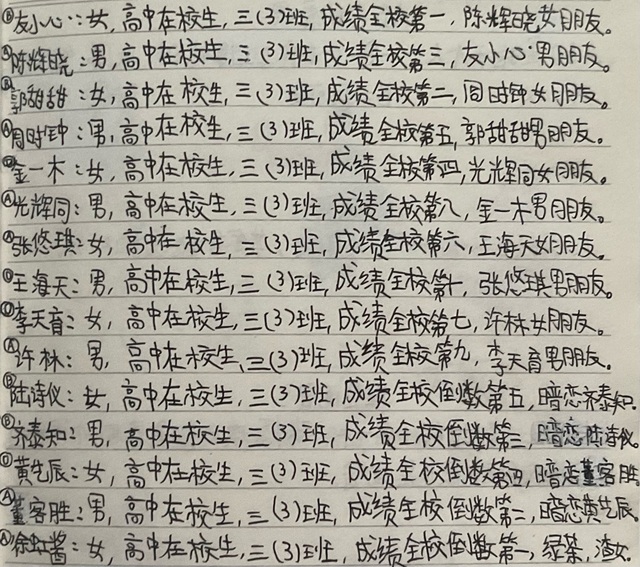 友小心:女,高中在校生,三(3)班,成绩全校第一,陈辉晓女朋友。
Ⓐ陈辉晓:男,高中在校生,三(3)班,成绩全校第三,友小心男朋友。
郭甜甜:女,高中在校生,三(3)班,成绩全校第二,周时钟女朋友。
Ⓐ周时钟:男,高中在校生,三(3)班,成绩全校第五,郭甜甜男朋友。
金一木:女,高中在校生,三(3)班,成绩全校第四,光辉同女朋友。
Ⓐ光辉同:男,高中在校生,三(3)班,成绩全校第八,金一木男朋友。
Ⓐ张悠琪:女,高中在校生,三(3)班,成绩全校第六,王海天女朋友。
王海天:男,高中在校生,三(3)班,成绩全校第十,张悠琪男朋友。
李天育:女,高中在校生,三(3)班,成绩全校第七,许林女朋友。
Ⓐ许林:男,高中在校生,三(3)班,成绩全校第九,李天育男朋友。
Ⓑ陆诗仪:女,高中在校生,三(3)班,成绩全校倒数第五,暗恋齐泰知。
Ⓑ齐泰知:男,高中在校生,三(3)班,成绩全校倒数第三,暗恋陆诗仪。
黄生辰:女,高中在校生,三(3)班,成绩全校倒数第四,暗恋董客胜
Ⓐ董客胜:男,高中在校生,三(3)班,成绩全校倒数第二,暗恋黄生辰。
Ⓐ徐虹酱:女,高中在校生,三(3)班,成绩全校倒数第一,绿茶,渣女.